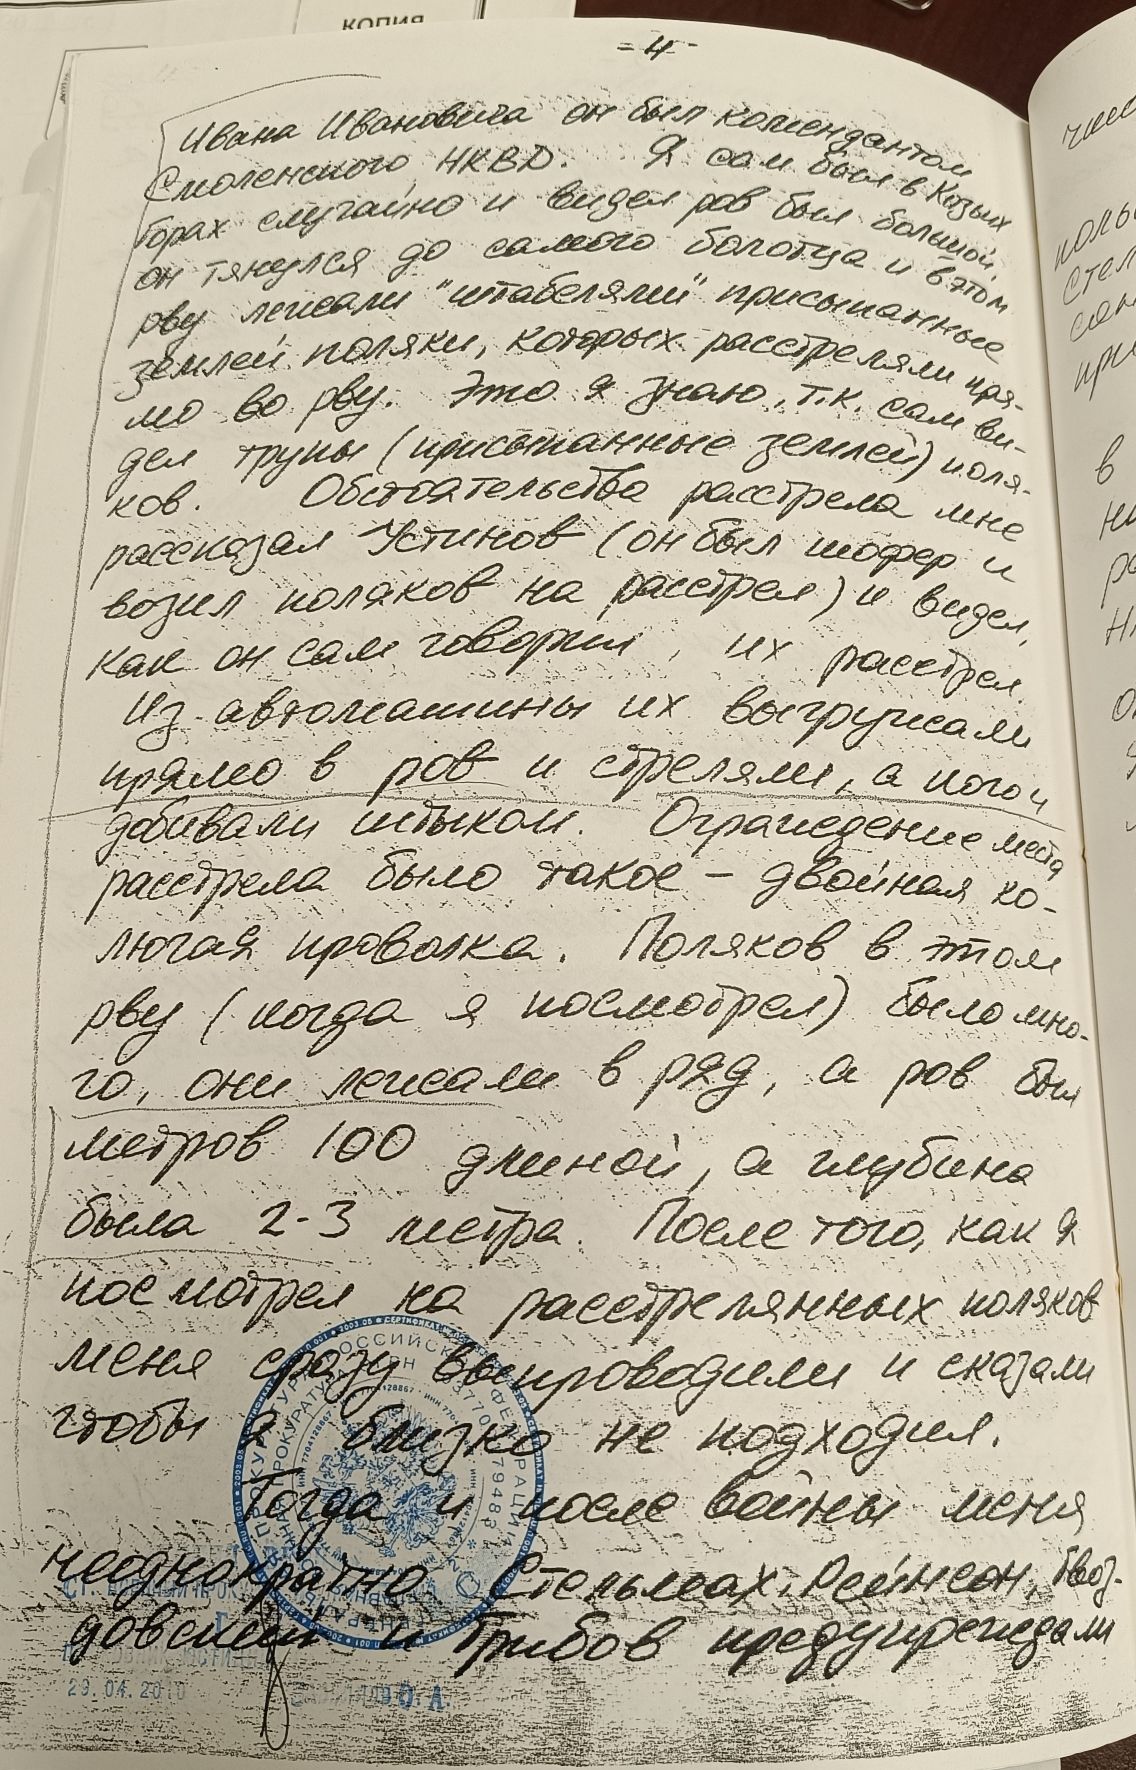 КОПИЯ
- 4 -
Ивана Ивановича он был комендантом
Смоленского НКВД. Я сам был в Козьих
борах случайно и видел ров был большой,
он тянулся до самого болотца и в этом
рву лежали "штабелями" присыпанные
землей поляки, которых расстреляли пря-
мо во рву. Это я знаю, т.к. сам ви-
дел трупы (присыпанные землей) поля-
ков. Обстоятельства расстрела мне
рассказал Устинов (он был шофер и
возил поляков на расстрел) и видел,
как он сам говорил, их расстрел.
Из автомашины их выгружали
прямо в ров и стреляли, а кого и
добивали штыком. Ограждение места
расстрела было такое – двойная ко-
лючая проволка. Поляков в этом
рву (когда я посмотрел) было мно-
го, они лежали в ряд, а ров был
метров 100 длиной, а глубина
была 2-3 метра. После того, как я
посмотрел на расстрелянных поляков
меня сразу выпроводили и сказали
чтобы я близко не подходил.
Тогда и после войны меня
неоднократно Стельмах, Рейнсон, Гвоз-
довский и Грибов предупреждали
29.04.2010